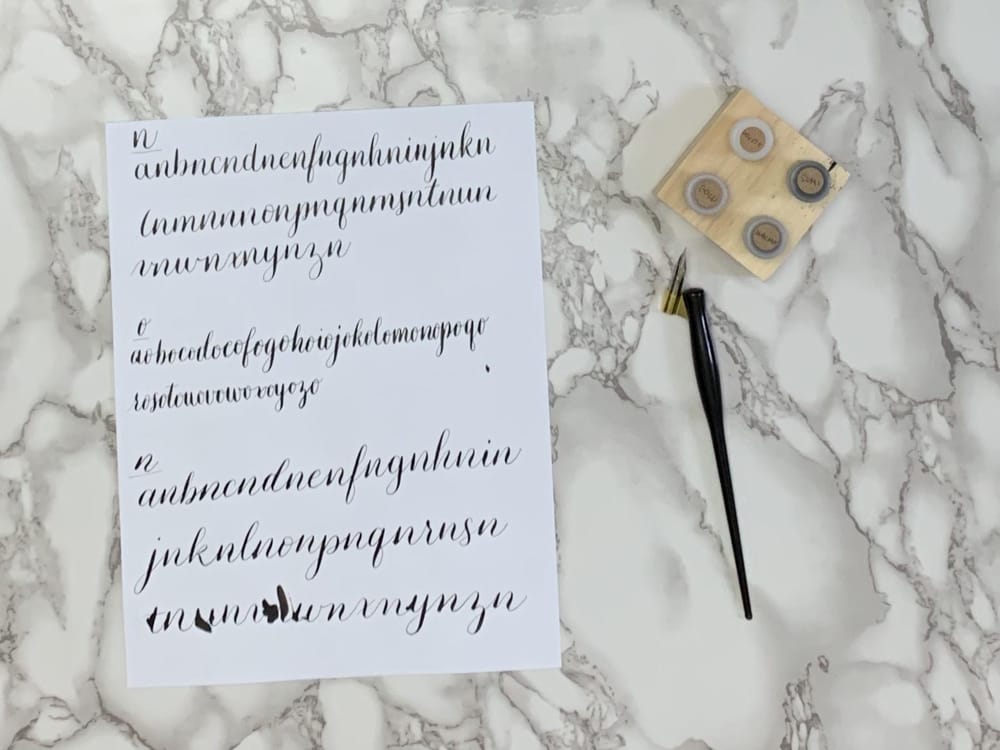 n
anbncndnenfngnhninjnkn
lnmnnnonpnqnrnsntnun
vnwnxnynzn
o
aobocodoeofogohoiojokolomonopoqo
rosotouovowoxoyozo
n
anbncndnenfngnhnin
jnknlnonpnqnrnsn
tnunvnwnxnynzn
SUMI
GOLD
WALNUT